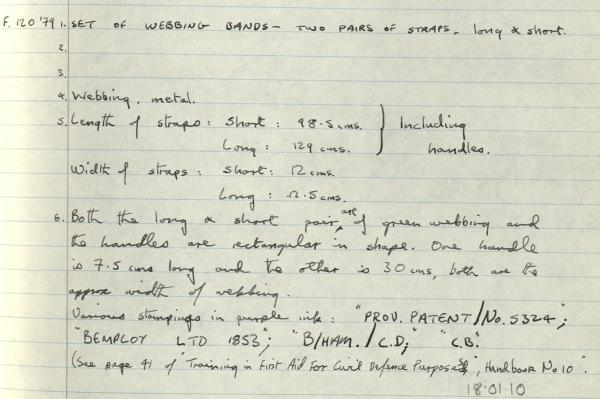 F.120'79 1. SET OF WEBBING BANDS - TWO PAIRS OF STRAPS - long & short.
2.
3.
4. Webbing, metal.
5. Length of straps: Short: 98.5 cms.
Long: 129 cms.
} Including handles.
Width of straps: Short: 12 cms.
Long: 12.5 cms.
6. Both the long & short pair are of green webbing and
the handles are rectangular in shape. One handle
is 7.5 cms long and the other is 30 cms, both are the
approx width of webbing.
Various stampings in purple ink: "PROV. PATENT/No. 5324";
"BEMPLOY LTD 1853"; "B/HAM./C.D;" "C.B".
(See page 41 of "Training in First Aid For Civil Defence Purposes", Handbook No 10".
18.01.10